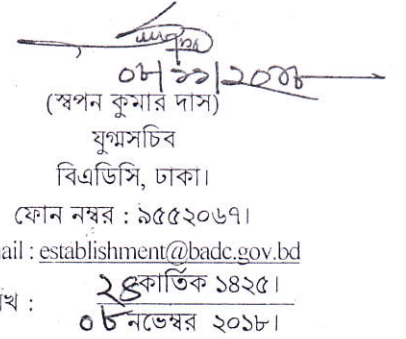 ০৮/১১/২০১৮
(স্বপন কুমার দাস)
যুগ্মসচিব
বিএডিসি, ঢাকা।
ফোন নম্বর : ৯৫৫২০৬৭।
ail : establishment@badc.gov.bd
২৪কার্তিক ১৪২৫।
খ :
০৮ নভেম্বর ২০১৮।